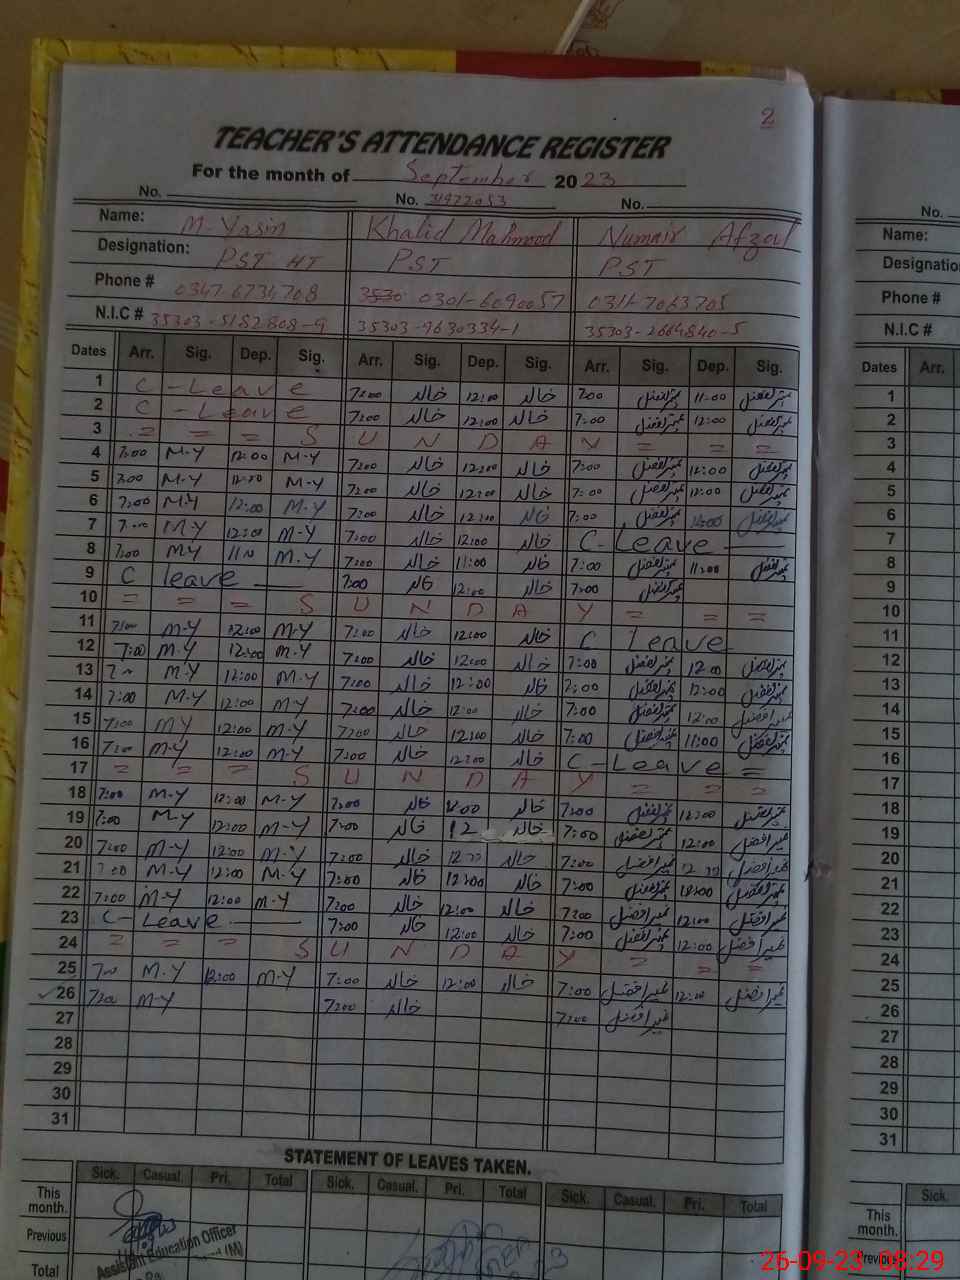 2
TEACHER'S ATTENDANCE REGISTER
For the month of September 2023
No. No. 31922053 No.
Name: M-Yasin Khalid Mahmood Numair Afzal
Designation: PST HT PST PST
Phone # 0347-6734708 0301-6090057 0311-7063705
N.I.C # 35303-5182808-9 35303-9630334-1 35303-2664840-5
Dates Arr. Sig. Dep. Sig. Arr. Sig. Dep. Sig. Arr. Sig. Dep. Sig.
1 C-Leave 7:00 خالد 12:00 خالد 7:00 11:00
2 C-Leave 7:00 خالد 12:00 خالد 7:00 12:00
3 = = = S U N D A Y = = =
4 7:00 M-Y 12:00 M-Y 7:00 خالد 12:00 خالد 7:00 12:00
5 7:00 M-Y 12:00 M-Y 7:00 خالد 12:00 خالد 7:00 12:00
6 7:00 M-Y 12:00 M-Y 7:00 خالد 12:00 خالد 7:00 12:00
7 7:00 M-Y 12:00 M-Y 7:00 خالد 12:00 خالد C-Leave
8 7:00 M-Y 11:00 M-Y 7:00 خالد 11:00 خالد 7:00 11:00
9 C leave 7:00 خالد 12:00 خالد 7:00
10 = = = S U N D A Y = = =
11 7:00 M-Y 12:00 M-Y 7:00 خالد 12:00 خالد C Leave
12 7:00 M-Y 12:00 M-Y 7:00 خالد 12:00 خالد 7:00 12:00
13 7:00 M-Y 12:00 M-Y 7:00 خالد 12:00 خالد 7:00 12:00
14 7:00 M-Y 12:00 M-Y 7:00 خالد 12:00 خالد 7:00 12:00
15 7:00 M-Y 12:00 M-Y 7:00 خالد 12:00 خالد 7:00 11:00
16 7:00 M-Y 12:00 M-Y 7:00 خالد 12:00 خالد C-Leave =
17 = = = S U N D A Y = = =
18 7:00 M-Y 12:00 M-Y 7:00 خالد 12:00 خالد 7:00 12:00
19 7:00 M-Y 12:00 M-Y 7:00 خالد 12 خالد 7:00 12:00
20 7:00 M-Y 12:00 M-Y 7:00 خالد 12:00 خالد 7:00 12:00
21 7:00 M-Y 12:00 M-Y 7:00 خالد 12:00 خالد 7:00 12:00
22 7:00 M-Y 12:00 M-Y 7:00 خالد 12:00 خالد 7:00 12:00
23 C-Leave 7:00 خالد 12:00 خالد 7:00 12:00
24 = = = S U N D A Y = = =
25 7:00 M-Y 12:00 M-Y 7:00 خالد 12:00 خالد 7:00 12:00
26 7:00 M-Y 7:00 خالد 7:00
27
28
29
30
31
STATEMENT OF LEAVES TAKEN.
Sick. Casual. Pri. Total Sick. Casual. Pri. Total Sick. Casual. Pri. Total
This month.
Previous
Total
Assistant Education Officer
(M)
No.
Name:
Designation
Phone #
N.I.C #
Dates Arr.
1
2
3
4
5
6
7
8
9
10
11
12
13
14
15
16
17
18
19
20
21
22
23
24
25
26
27
28
29
30
31
Sick.
This month.
Previous
26-09-23 08:29